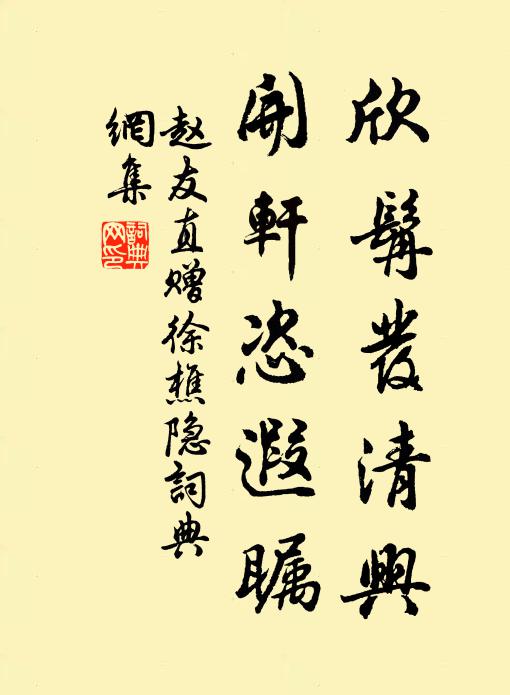 欣髯發清興
開軒恣遐矚
赵友直赠徐樵隐詞典
網集
詞典
网印